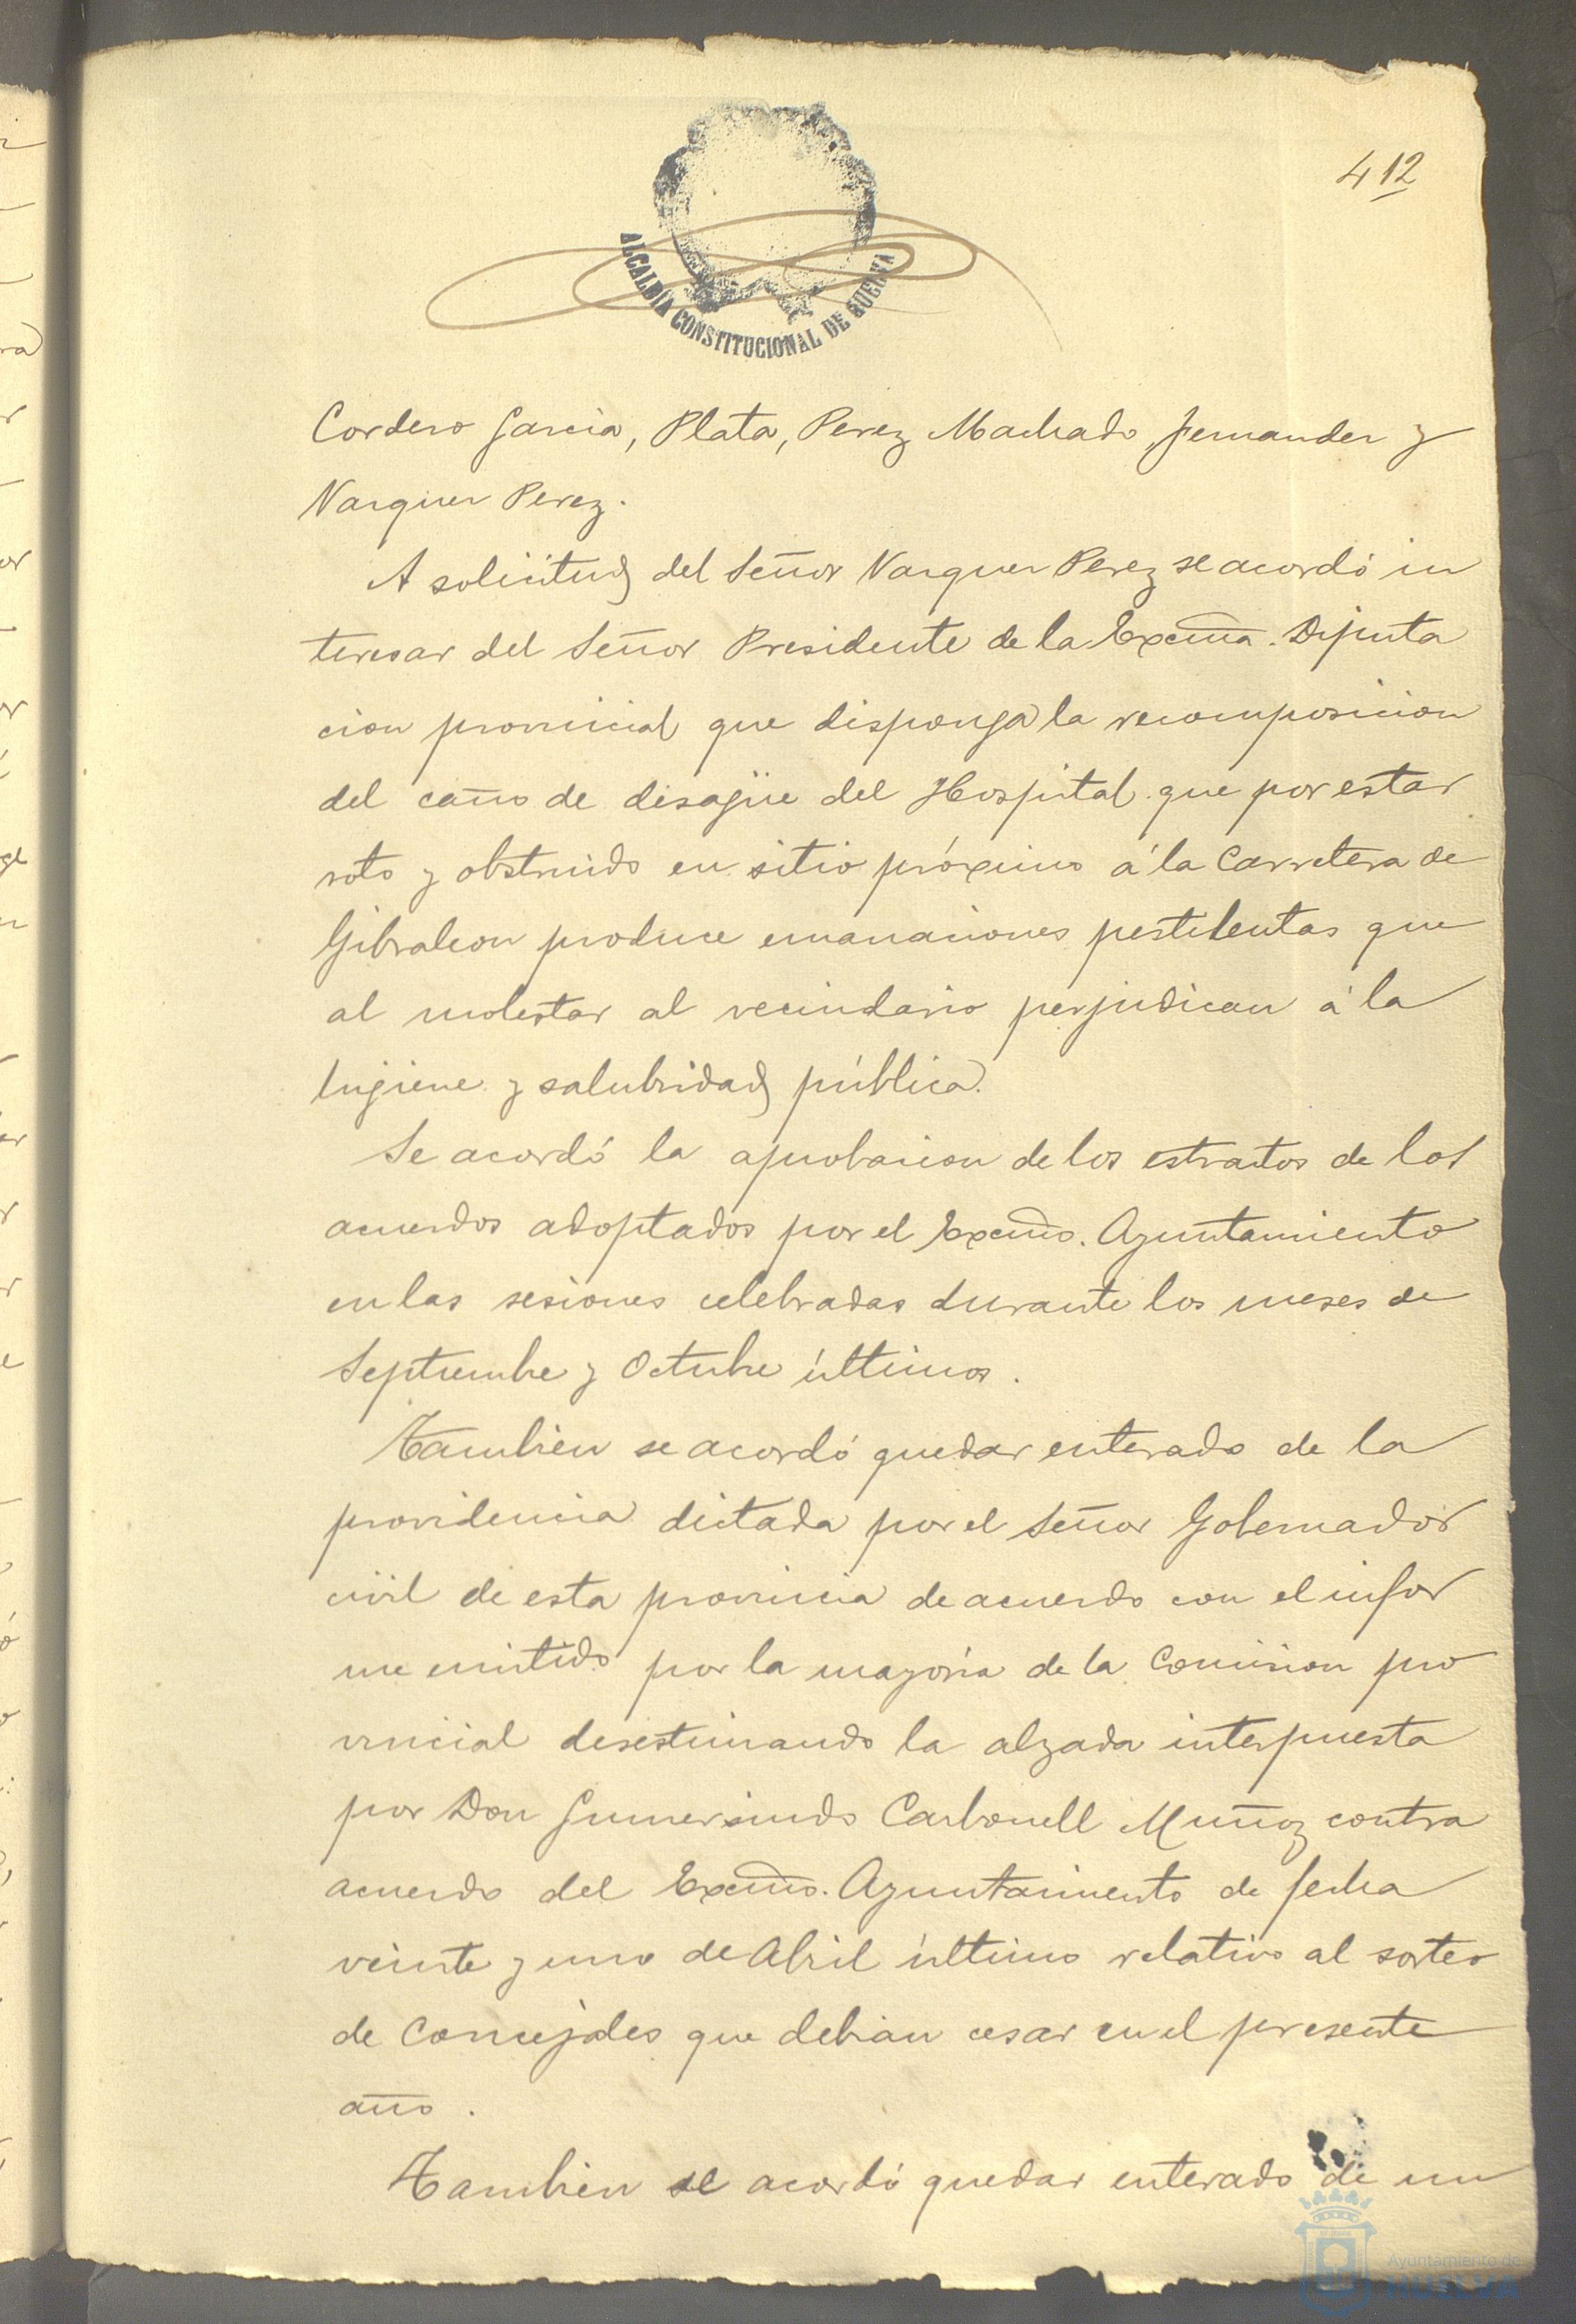 412
ALCALDÍA CONSTITUCIONAL DE HUELVA
Cordero Garcia, Plata, Perez Machado, Fernandez y
Vazquez Perez.
A solicitud del Señor Vazquez Perez se acordó in
teresar del Señor Presidente de la Excma. Diputa
cion provincial que disponga la recomposicion
del caño de desagüe del Hospital que por estar
roto y obstruido en sitio próximo á la Carretera de
Gibraleon produce emanaciones pestilentas que
al molestar al vecindario perjudican á la
higiene y salubridad pública.
Se acordó la aprobacion de los estractos de los
acuerdos adoptados por el Excmo. Ayuntamiento
en las sesiones celebradas durante los meses de
Septiembre y Octubre últimos.
Tambien se acordó quedar enterado de la
providencia dictada por el Señor Gobernador
civil de esta provincia de acuerdo con el infor
me emitido por la mayoría de la Comision pro
vincial desestimando la alzada interpuesta
por Don Gumersindo Carbonell Muñoz contra
acuerdo del Excmo. Ayuntamiento de fecha
veinte y uno de Abril último relativo al sorteo
de Concejales que debian cesar en el presente
año.
Tambien se acordó quedar enterado de un
Ayuntamiento de
HUELVA